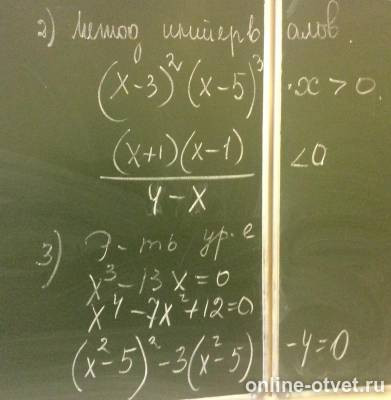 2) метод интервалов.
(x-3)² (x-5)³ · x > 0
(x+1)(x-1) / 4-x < 0
3) ур-е
x³ - 13x = 0
x⁴ - 7x² + 12 = 0
(x²-5)² - 3(x²-5) - 4 = 0
online-otvet.ru